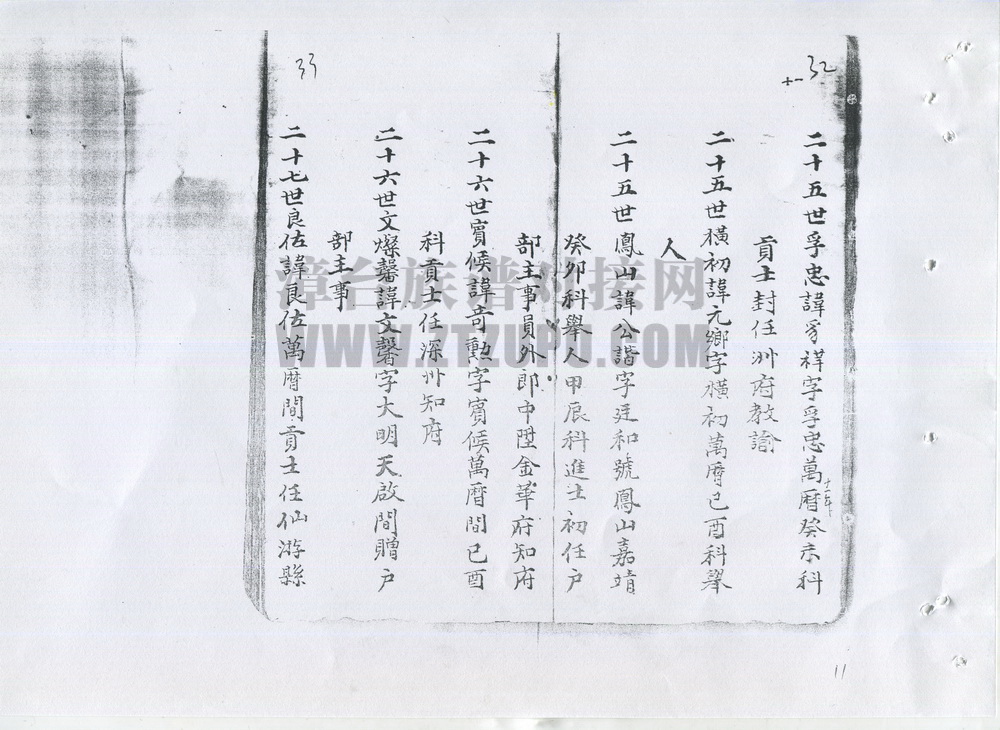 32
十一
二十五世孚忠諱豸祥字孚忠萬曆癸未科
十一年
貢士封任州府教諭
二十五世橫初諱元鄉字橫初萬曆己酉科舉
人
二十五世鳳山諱公諧字廷和號鳳山嘉靖
癸卯科舉人甲辰科進士初任户
33
部主事員外郎中陞金華府知府
二十六世賓候諱奇勲字賓候萬曆間己酉
科貢士任深州知府
二十六世文燦馨諱文馨字大明天啟間贈户
部主事
二十七世良佐諱良佐萬曆間貢士任仙游縣
11
漳台族谱对接网
WWW.ZTZUPU.COM